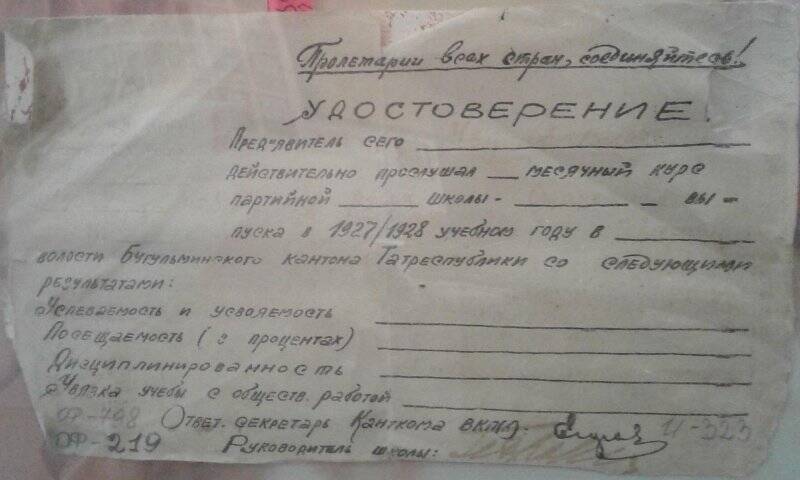 Пролетарии всех стран, соединяйтесь!
УДОСТОВЕРЕНИЕ!
Пред-явитель сего
действительно прослушал ___ месячный курс
партийной ______ школы - ______ - вы -
пуска в 1927/1928 учебном году в
волости Бугульминского кантона Татреспублики со следующими
результатами:
Успеваемость и усвояемость
Посещаемость (в процентах)
Дисциплинированность
Увязка учебы с обществ. работой
ОФ-798 Ответ. секретарьКанткома ВКП(б). И-323
ОФ-219 Руководитель школы: